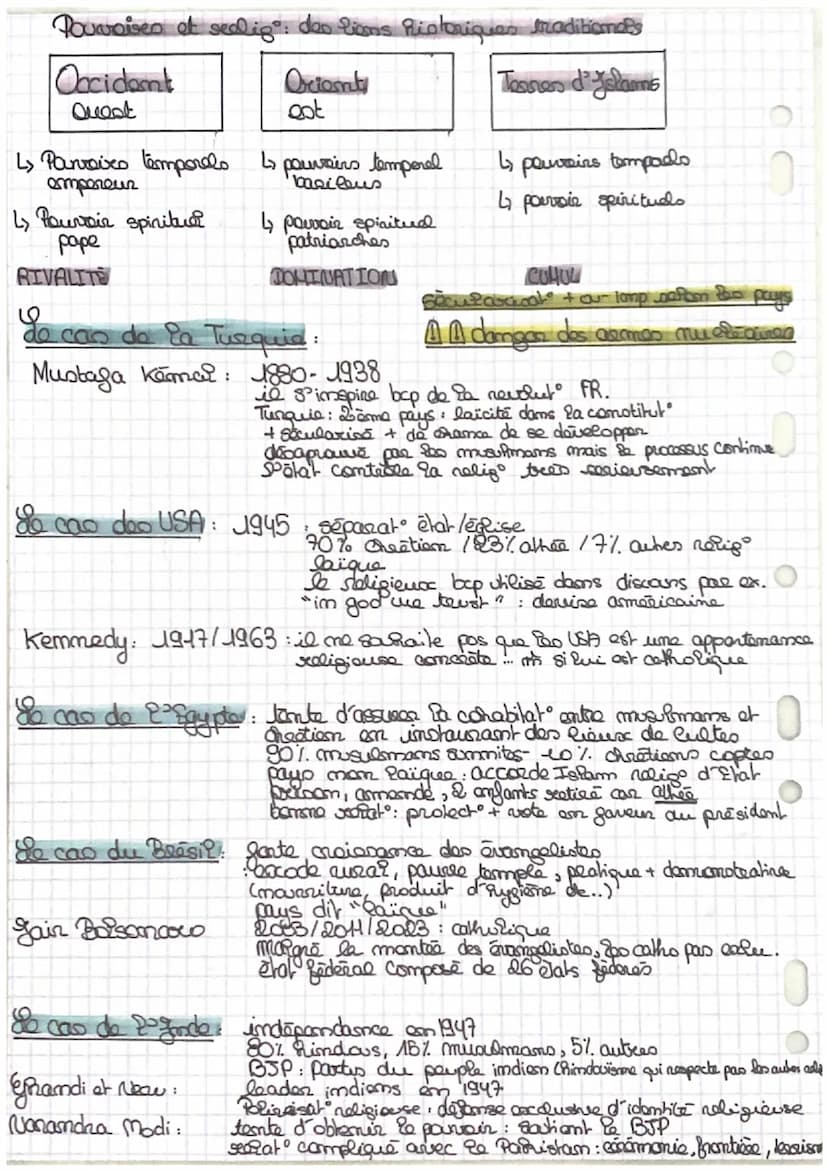 Pouvoirs et relig°: des liens historiques traditionnels
Occident
Ouest
Orient
est
Terres d'Islams
↳ Pouvoirs temporels
empereur
↳ Pouvoir spirituel
pape
↳ pouvoirs temporel
basileus
↳ pouvoir spirituel
patriarches
↳ pouvoirs temporels
↳ pouvoir spirituels
RIVALITÉ
DOMINATION
CUMUL
sécularisat° + ou - imp selon les pays
⚠ ⚠ danger des armes nucléaires
Le cas de la Turquie :
Mustafa Kémal : 1880 - 1938
il s'inspire bcp de la revolut° FR.
Turquie : 2ème pays : laïcité dans la constitut°
+ sécularisé + de chance de se développer
désaprouvé par les musulmans mais le processus continue
l'état contrôle la relig° très serieusement
Le cas des USA : 1945 : séparat° état/église
70% chrétien / 23% athée / 7% autres relig°
laïque
le religieux bcp utilisé dans discours par ex.
"in god we trust" : devise américaine
Kennedy : 1917/1963 : il ne souhaite pas que les USA est une appartenance
religieuse concrète ... m̂ si lui est catholique
Le cas de l'Egypte : tente d'assurer la cohabitat° entre musulmans et
chrétien en instaurant des lieux de cultes
90% musulmans sunnites - 10% chrétiens coptes
pays non laïque : accorde Islam relig° d'Etat
prison, amende, 2 enfants retiré car athée
bonne relat° : protect° + vote en faveur au président
Le cas du Brésil : forte croissance des évangelistes
: exode rural, pauvre temple, pratique + démonstrative
(nourriture, produit d'hygiène de..)
pays dit "laïque"
Jair Bolsonaro
: catholique
Malgré la montée des évangelistes, les catho pas exclu.
état fédéral composé de 26 états fédérés
Le cas de l'Inde : indépendance en 1947
80% hindous, 15% musulmans, 5% autres
BJP : partus du peuple indien (hindouisme qui respecte pas les autres
Ghandi et Neru : leader indiens en 1947
religieuse : défense exclusive d'identité religieuse
Narandra Modi : tente d'obtenir le pouvoir : soutient le BJP
relat° compliqué avec le Pakistan : cérémonie, frontière,